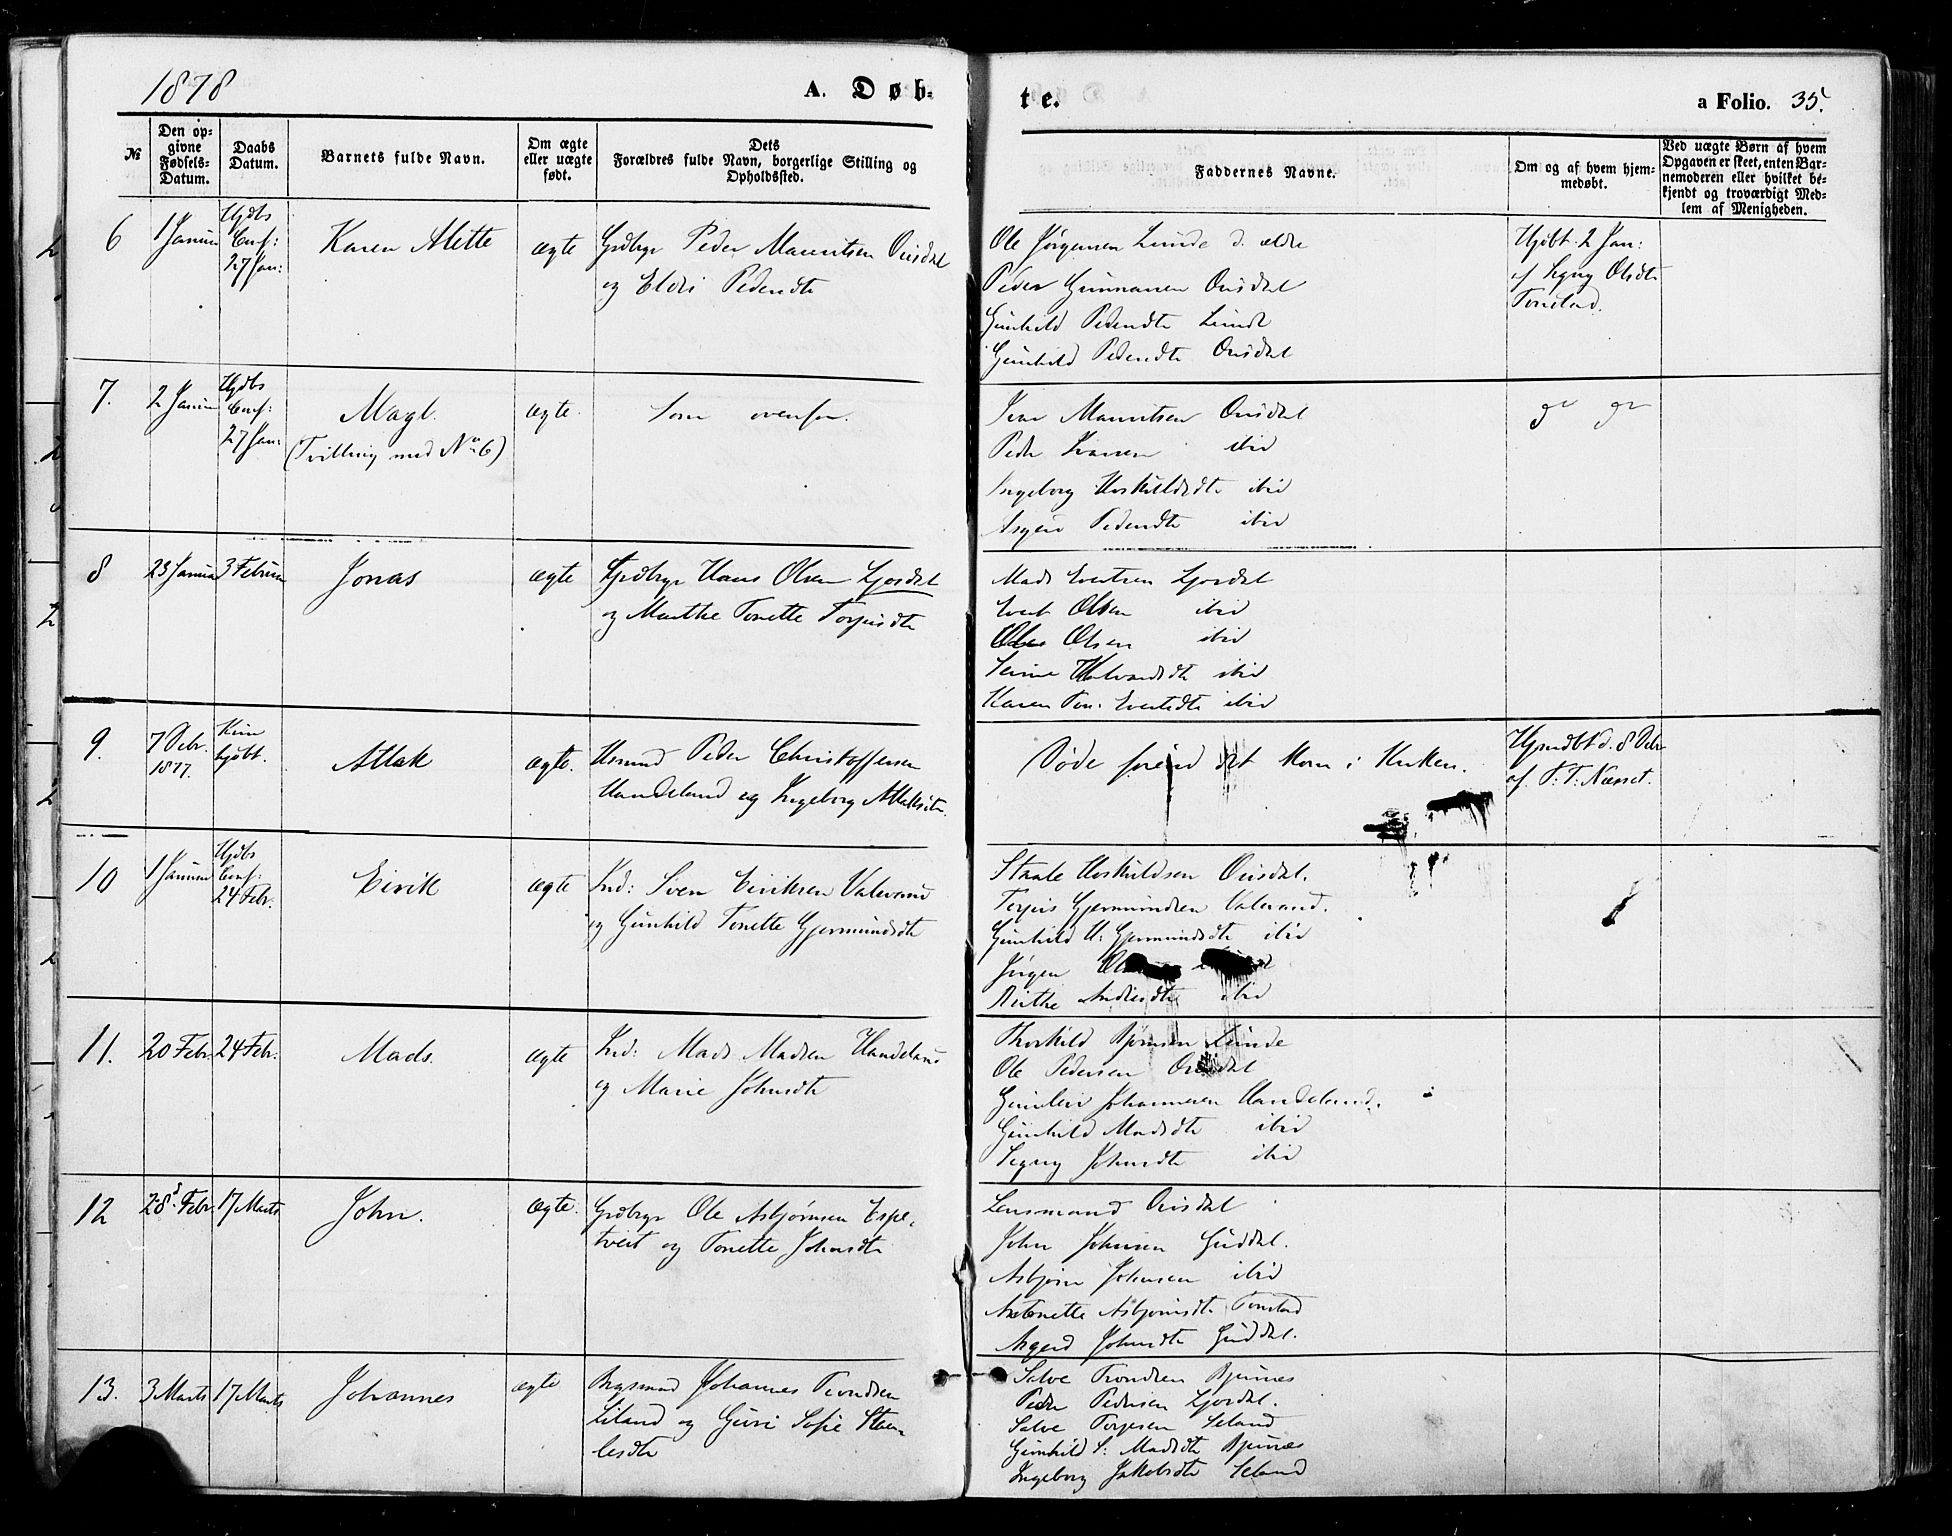 1878
A. Døb-
te.
a Folio. 35.
№
Den op-
givne
Fødsels-
Datum.
Daabs
Datum.
Barnets fulde Navn.
Om ægte
eller uægte
født.
Dets
Forældres fulde Navn, borgerlige Stilling og
Opholdssted.
Faddernes Navne.
Om og af hvem hjem-
medøbt.
Ved uægte Børn af hvem
Opgaven er skeet, enten Bar-
nemoderen eller hvilket be-
kjendt og troværdigt Med-
lem af Menigheden.
6
1 Januar
Hjdbs
Conf:
27 Jan:
Karen Alette
ægte
Grdbrgr Peder Mauritsen Ousdal
og Eldri Pedersdtr
Ole Jørgensen Lunde d. ældre
Peder Gunnarsen Ousdal
Gunhild Pedersdtr Lunde
Gunhild Pedersdtr Ousdal
Hjdbt. 2 Jan:
af Signy Olsdtr
Tonstad.
7.
2 Januar
Hjdbs
Conf:
27 Jan:
Magl.
(Tvilling med No 6)
ægte.
Som ovenfor.
Ivar Mauritsen Ousdal
Peder Ivarsen ibid
Ingeborg Hoskildsdtr ibid
Pedersdtr ibid
8
23 Januar
3 Februar
Jonas
ægte
Grdbrgr Hans Olsen Ljosdal
og Marthe Tonette Torjusdtr
Mads Evertsen Ljosdal
Evert Olsen ibid
Ole Olsen ibid
Halvorsdtr ibid
Karen Ton. Evertsdtr ibid
9.
7 Debr.
1877.
Kun
hjdbt.
Atlak
ægte.
Husmand Peder Christoffersen
Handeland og Ingeborg Atlaksdtr.
Døde førend det kom i Kirken.
Hjemdbt d. 8 Debr
af P. T. Næsset.
10
1 Januar
Hjdbs
Conf:
24 Febr.
Eirik
ægte
Ind: Sven Eiriksen Valevand
og Gunhild Tonette Gjermundsdtr
Staale Hoskildsen Ousdal.
Torjus Gjermundsen Valevand.
Gunhild A: Gjermundsdtr ibid
Jørgen
Birthe Andersdtr ibid
11.
20 Febr.
24 Febr.
Mads.
ægte
Ind: Mads Madsen Handeland
og Marie Johnsdtr
Thorkild Bjørnsen Lunde
Ole Pedersen Ousdal
Gunleiv Johannesen Handeland.
Gunhild Madsdtr ibid
Signy Johnsdtr ibid
12
28 Febr.
17 Marts
John.
ægte.
Grdbrgr Ole Asbjørnsen Espe-
tveit og Tonette Johnsdtr
Lensmand Ousdal
John Johnsen Guddal.
Asbjørn Johnsen ibid
Antonette Asbjørnsdtr Tonstad
Asgerd Johnsdtr Guddal.
13.
3 Marts
17 Marts
Johannes
ægte
Bygsmand Johannes Trondsen
Liland og Guri Sofie Staa-
lesdtr
Salve Trondsen Bjunes
Peder Pedersen Ljosdal.
Salve Torjesen Seland
Gunhild S: Madsdtr Bjunes
Ingeborg Jakobsdtr Seland